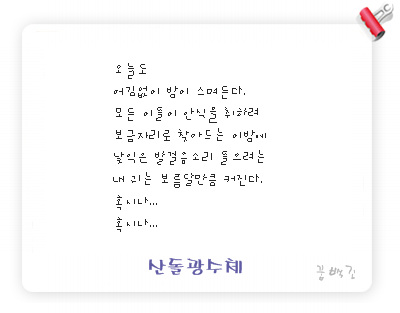 오늘도
어김없이 밤이 스며든다.
모든 이들이 안식을 취하려
보금자리로 찾아드는 이밤에
낯익은 발걸음소리 들으려는
내 귀는 보름달만큼 커진다.
혹시나...
혹시나...
산돌광수체
꿈백진